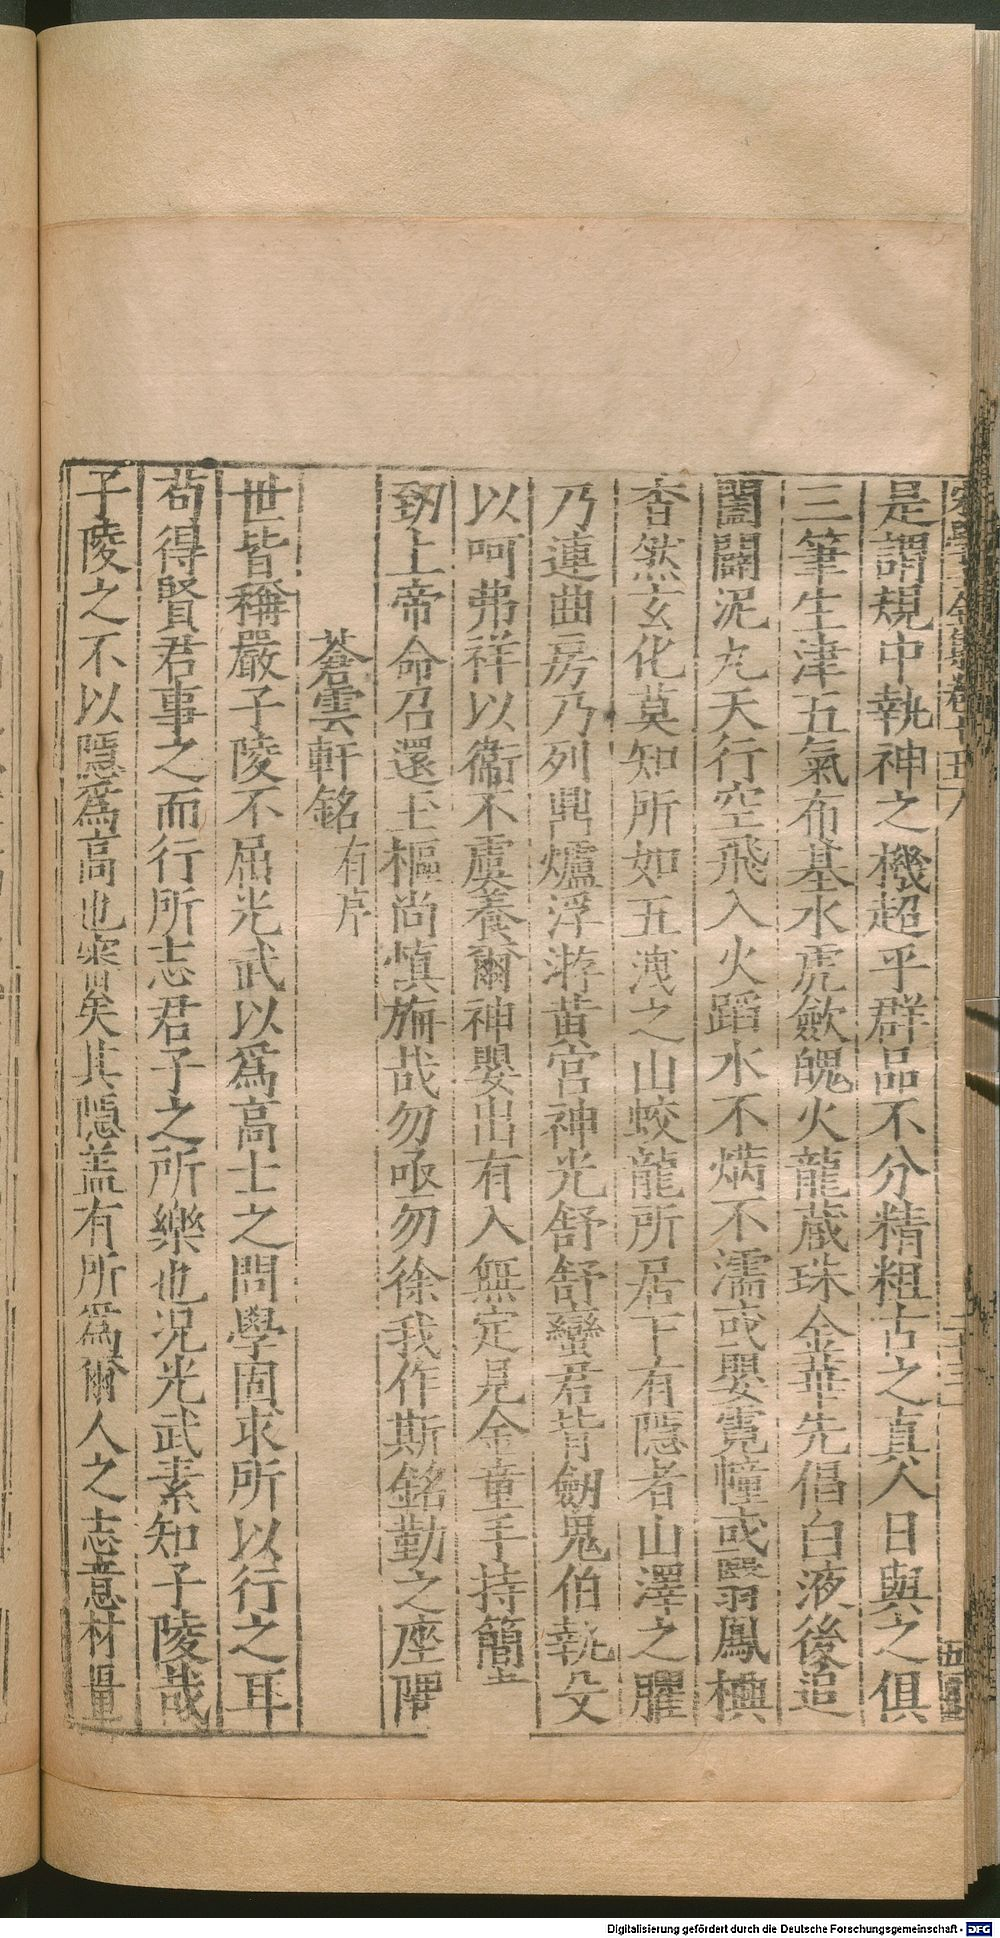 是謂規中執神之機超乎群品不分精粗古之真人日與之俱
三筆生津五氣布基水虎歛魄火龍蔵珠金華先倡白液後追
闔闢泥丸天行空飛入火蹈水不焫不濡或嬰霓幢或翳鳳
杳然玄化莫知所如五洩之山蛟龍所居下有隱者山澤之臞
乃連曲房乃列鼎爐浮游黄宮神光舒舒蠻君背劒鬼伯執殳
以呵弗祥以衛不虞養爾神嬰出有入無定見金童手持簡
勑上帝命召還玉樞尚慎旃哉勿亟勿徐我作斯銘勤之座隅
蒼雲軒銘有序
世皆稱嚴子陵不屈光武以爲高士之問學固求所以行之耳
茍得賢君事之而行所志君子之所樂也况光武素知子陵哉
子陵之不以隱爲高也審矣其隱盖有所爲爾人之志意材量
Digitalisierung gefördert durch die Deutsche Forschungsgemeinschaft - DFG